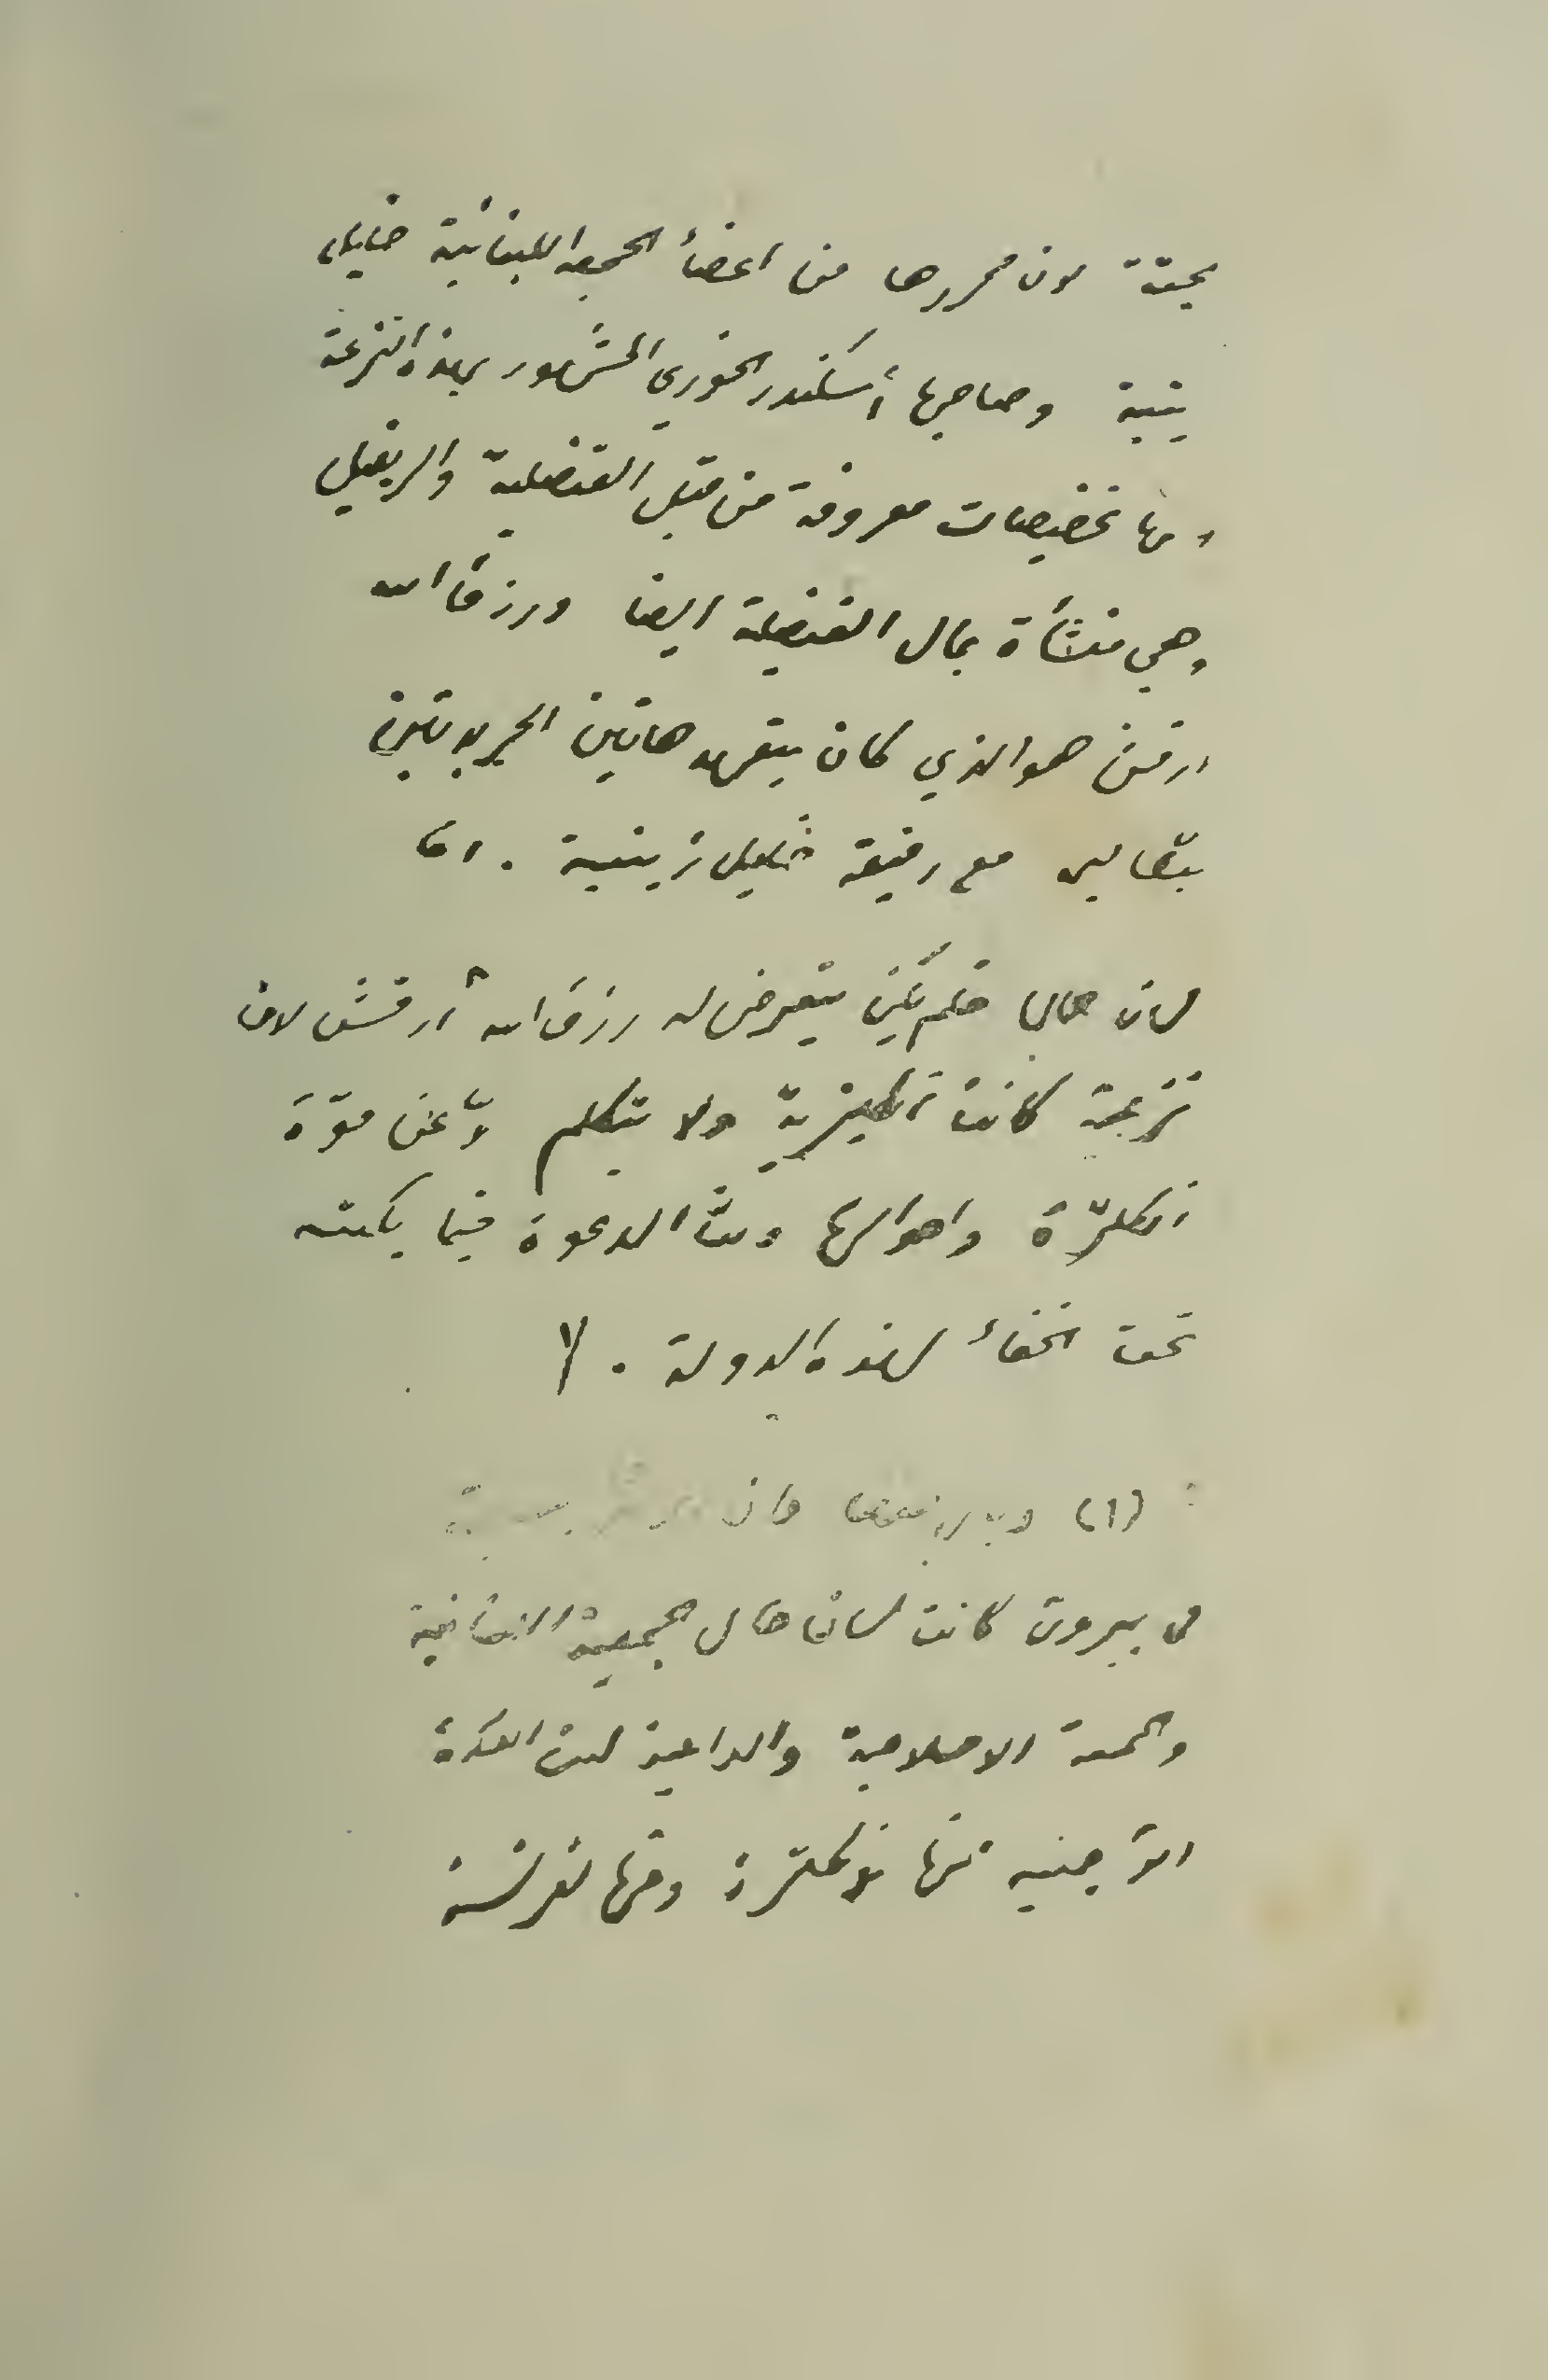 بحتة لان محررها من اعضأ الجمعية اللبنانية خليل
ينية وصاحبها أسكندر الخوري المشهور بهذه النزعة
ولها تخصيصات معروفة من قبل القنصلية والريفيل
وهي منشأة بمال القنصلية ايضا ورزق الله
ارقش هو الذي كان يتعهد هاتين الجريدتين
بمقاليه مع رفيقه خليل زينية . اما
لسان حال فلم يكن يتعرض له رزق الله أرقش لان
نزعته كانت انكليزية ولا يتكلم الا عن قوة
انكلترة واحوالها وبث الدعوة فيما يكتبه
تحت الخفأ لهذه الدولة .
(١) وان
في بيروت كانت لسان حال الجمعية اللبنانية
والجمعية الاصلاحية والداعية لبث الفكرة
الاجنبية منها لانكلترة ومنها لفرنسة